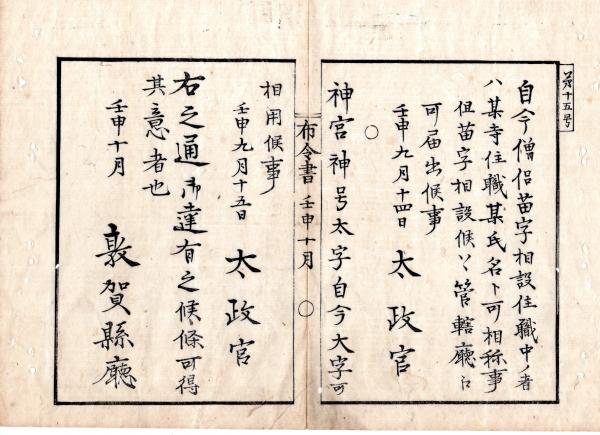 第十五号
自今僧侶苗字相設住職中ノ者
ハ某寺住職某氏名ト可相称事
但苗字相設候ハヽ管轄廳ヘ
可届出候事
壬申九月十四日 太政官
〇
神宮神号太字自今大字可
布令書 壬申十月 〇
相用候事
壬申九月十五日 太政官
右之通御達有之候條可得
其意者也
壬申十月 敦賀縣廳